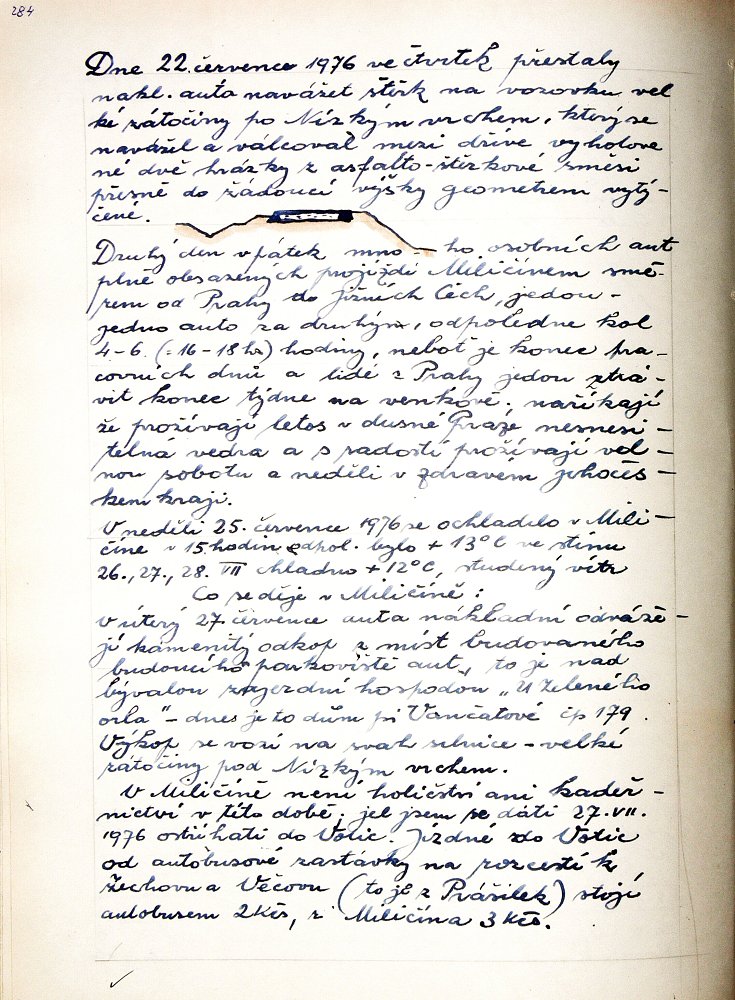 284
Dne 22. července 1976 ve čtvrtek přestaly
nakl. auta navážet štěrk na vozovku vel
ké zátočiny po Nízkým vrchem, který se
navážel a válcoval mezi dříve vyhotove
né dvě hrázky z asfalto-štěrkové směsi
přesně do žádoucí výšky geometrem vytý-
čené.
Druhý den v pátek mno- ho osobních aut
plně obsazených projíždí Miličínem smě-
rem od Prahy do jižních Čech, jedou-
jedno auto za druhým, odpoledne kol
4-6. (=16-18 h) hodiny, neboť je konec pra-
covních dnů a lidé z Prahy jedou ztrá-
vit konec týdne na venkově; naříkají
že prožívají letos v dusné Praze nesnesi-
telná vedra a s radostí prožívají vol-
nou sobotu a neděli v zdravém jihočes-
kém kraji.
V neděli 25. července 1976 se ochladilo v Mili-
číně v 15 hodin odpol. bylo + 13°C ve stínu
26., 27., 28. VII chladno + 12°C, studený vítr
Co se děje v Miličíně:
V úterý 27. července auta nákladní odváže-
jí kamenitý odkop z míst budovaného
budoucího parkoviště aut, to je nad
bývalou zájezdní hospodou „U Zeleného
orla" - dnes je to dům pí Vančatové čp 179.
Výkop se vozí na svah silnice - velké
zátočiny pod Nízkým vrchem.
V Miličíně není holičství ani kadeř-
nictví v této době; jel jsem se dáti 27. VII.
1976 ostříhati do Votic. Jízdné do Votic
od autobusové zastávky na rozcestí k
Žechovu a Věčovu (to je z Prášilek) stojí
autobusem 2 Kčs, z Miličína 3 Kčs.